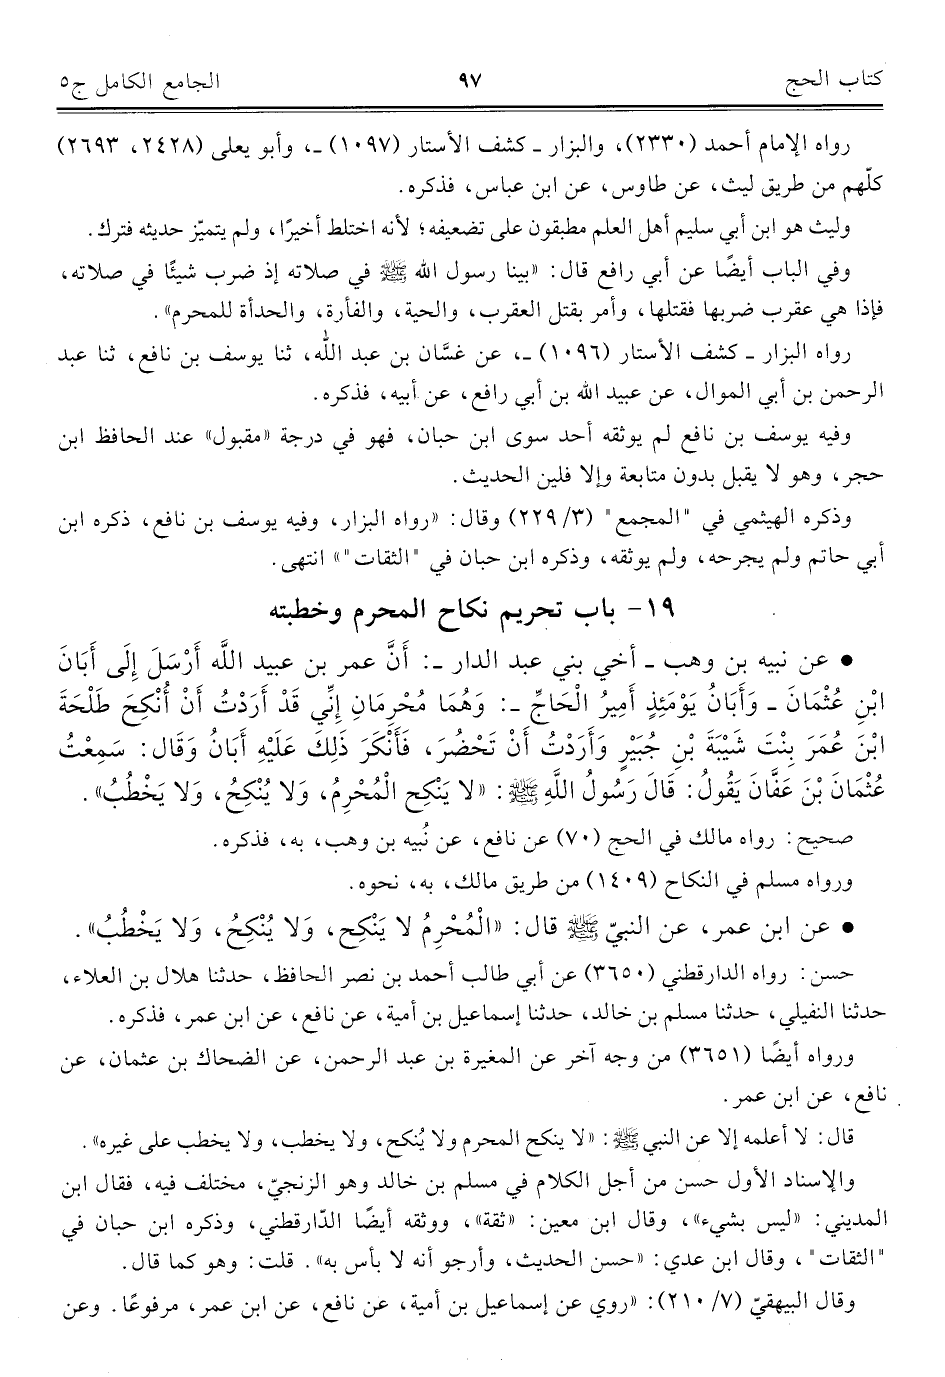 كتاب الحج ٩٧ الجامع الكامل ج٥
رواه الإمام أحمد (٢٣٣٠)، والبزار ـ كشف الأستار (١٠٩٧) ـ، وأبو يعلى (٢٤٢٨، ٢٦٩٣)
كلّهم من طريق ليث، عن طاوس، عن ابن عباس، فذكره.
وليث هو ابن أبي سليم أهل العلم مطبقون على تضعيفه؛ لأنه اختلط أخيرًا، ولم يتميّز حديثه فترك.
وفي الباب أيضًا عن أبي رافع قال: «بينا رسول الله ﷺ في صلاته إذ ضرب شيئًا في صلاته،
فإذا هي عقرب ضربها فقتلها، وأمر بقتل العقرب، والحية، والفأرة، والحدأة للمحرم».
رواه البزار ـ كشف الأستار (١٠٩٦) ـ، عن غسَّان بن عبد الله، ثنا يوسف بن نافع، ثنا عبد
الرحمن بن أبي الموال، عن عبيد الله بن أبي رافع، عن أبيه، فذكره.
وفيه يوسف بن نافع لم يوثقه أحد سوى ابن حبان، فهو في درجة «مقبول» عند الحافظ ابن
حجر، وهو لا يقبل بدون متابعة وإلا فلين الحديث.
وذكره الهيثمي في "المجمع" (٣/ ٢٢٩) وقال: «رواه البزار، وفيه يوسف بن نافع، ذكره ابن
أبي حاتم ولم يجرحه، ولم يوثقه، وذكره ابن حبان في "الثقات"» انتهى.
١٩- باب تحريم نكاح المحرم وخطبته
● عن نبيه بن وهب ـ أخي بني عبد الدار ـ: أَنَّ عمر بن عبيد اللَّه أَرْسَلَ إِلَى أَبَانَ
ابْنِ عُثْمَانَ ـ وَأَبَانُ يَوْمَئِذٍ أَمِيرُ الْحَاجِّ ـ: وَهُمَا مُحْرِمَانِ إِنِّي قَدْ أَرَدْتُ أَنْ أُنْكِحَ طَلْحَةَ
ابْنَ عُمَرَ بِنْتَ شَيْبَةَ بْنِ جُبَيْرٍ وَأَرَدْتُ أَنْ تَحْضُرَ، فَأَنْكَرَ ذَلِكَ عَلَيْهِ أَبَانُ وَقَالَ: سَمِعْتُ
عُثْمَانَ بْنَ عَفَّانَ يَقُولُ: قَالَ رَسُولُ اللَّهِ ﷺ: «لا يَنْكِحِ الْمُحْرِمُ، وَلا يُنْكِحُ، وَلا يَخْطُبُ».
صحيح: رواه مالك في الحج (٧٠) عن نافع، عن نُبيه بن وهب، به، فذكره.
ورواه مسلم في النكاح (١٤٠٩) من طريق مالك، به، نحوه.
● عن ابن عمر، عن النبيّ ﷺ قال: «الْمُحْرِمُ لا يَنْكِح، وَلا يُنْكِحُ، وَلا يَخْطُبُ».
حسن: رواه الدارقطني (٣٦٥٠) عن أبي طالب أحمد بن نصر الحافظ، حدثنا هلال بن العلاء،
حدثنا النفيلي، حدثنا مسلم بن خالد، حدثنا إسماعيل بن أمية، عن نافع، عن ابن عمر، فذكره.
ورواه أيضًا (٣٦٥١) من وجه آخر عن المغيرة بن عبد الرحمن، عن الضحاك بن عثمان، عن
نافع، عن ابن عمر.
قال: لا أعلمه إلا عن النبي ﷺ: «لا ينكح المحرم ولا يُنكح، ولا يخطب، ولا يخطب على غيره».
والإسناد الأول حسن من أجل الكلام في مسلم بن خالد وهو الزنجيّ، مختلف فيه، فقال ابن
المديني: «ليس بشيء»، وقال ابن معين: «ثقة»، ووثقه أيضًا الدّارقطني، وذكره ابن حبان في
"الثقات"، وقال ابن عدي: «حسن الحديث، وأرجو أنه لا بأس به». قلت: وهو كما قال.
وقال البيهقيّ (٧/ ٢١٠): «روي عن إسماعيل بن أمية، عن نافع، عن ابن عمر، مرفوعًا. وعن